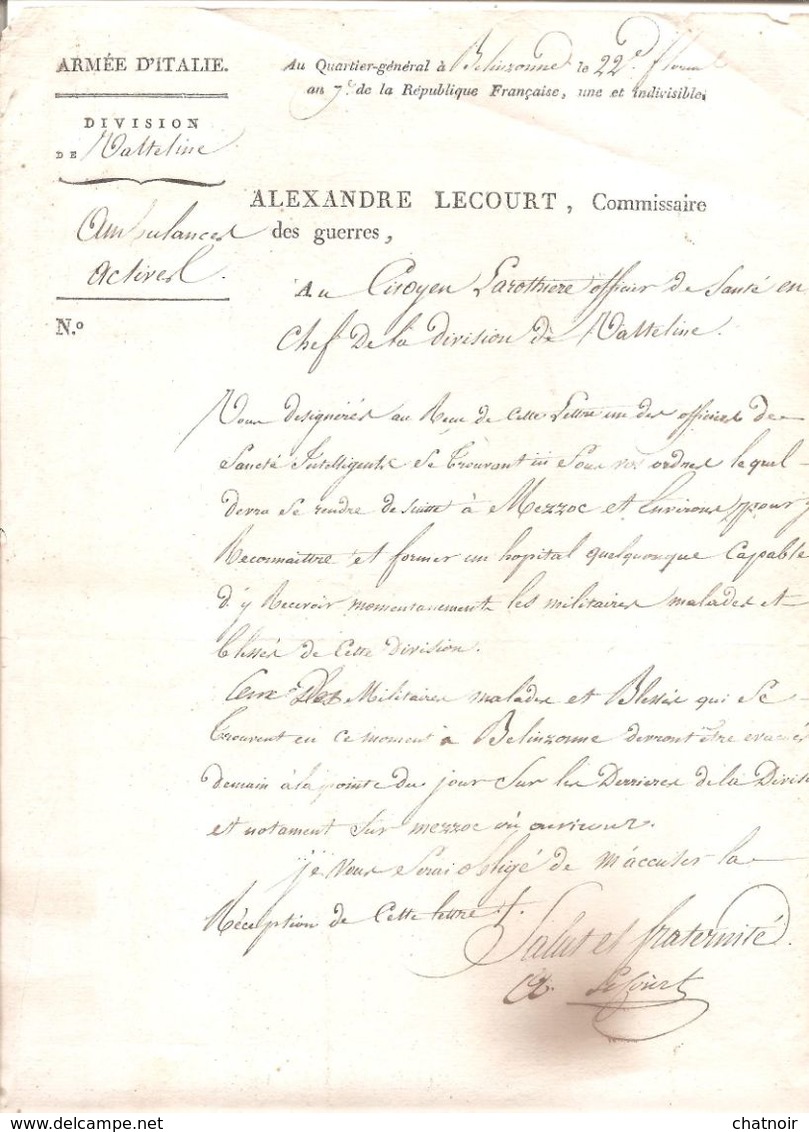 ARMÉE D'ITALIE.
Au Quartier-général à Belinzonne le 22e. floreal
an 7e. de la République Française, une et indivisible,
DIVISION
DE Valteline
Ambulances
Actives
N.o
ALEXANDRE LECOURT, Commissaire
des guerres,
Au Citoyen Larothiere officier de Santé en
Chef De la division de Valteline.
Vous designerés au Recu de Cette Lettre un des officiers de
Sancté Intelligents Se trouvant ici Sous vos ordres lequel
devra Se rendre de suitte à Mezzoc et Environs pour y
Reconnaittre et former un hopital quelquonque Capable
d'y Recevoir momentanement les militaires malades et
blessés de Cette Division.
Ceux Des Militaires malades et Blessés qui Se
trouvent en ce moment à Belinzonne devront être evacués
demain à la pointe du jour Sur les Derrieres de la Divisi
et notament Sur mezzoc où
je Vous Serai obligé de m'accuser la
Réception de Cette lettre.
Salut et fraternité.
Ax. Lecourt
chatnoir